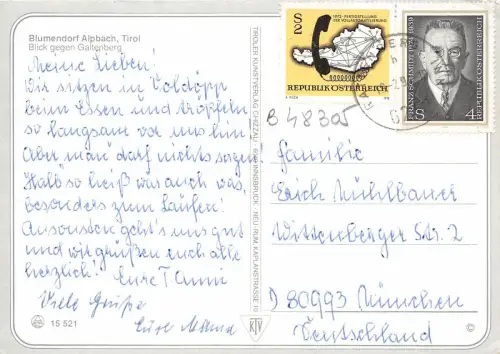 Blumendorf Alpbach, Tirol
Blick gegen Galtenberg
Meine Lieben!
Wir sitzen in Voldöpp
beim Essen und tröpfeln
so langsam vor uns hin
Aber man darf nichts sagen
Halb so heiß wär auch was,
besonders zum Laufen!
Ansonsten geht's uns gut
und wir grüßen euch alle
herzlich! Eure
Viele Grüße
Eure
15 521
TIROLER KUNSTVERLAG CHIZZALI, 6020 INNSBRUCK - NEU-RUM, KAPLANSTRASSE
KTV
S2
1972 · FERTIGSTELLUNG
DER VOLLAUTOMATISIERUNG
REPUBLIK ÖSTERREICH
FRANZ SCHMIDT 1874-1939
REPUBLIK ÖSTERREICH
S 4
B 48305
Familie
Erich Mühlbauer
Wittenberger Str. 2
D 80993 München
Deutschland
©